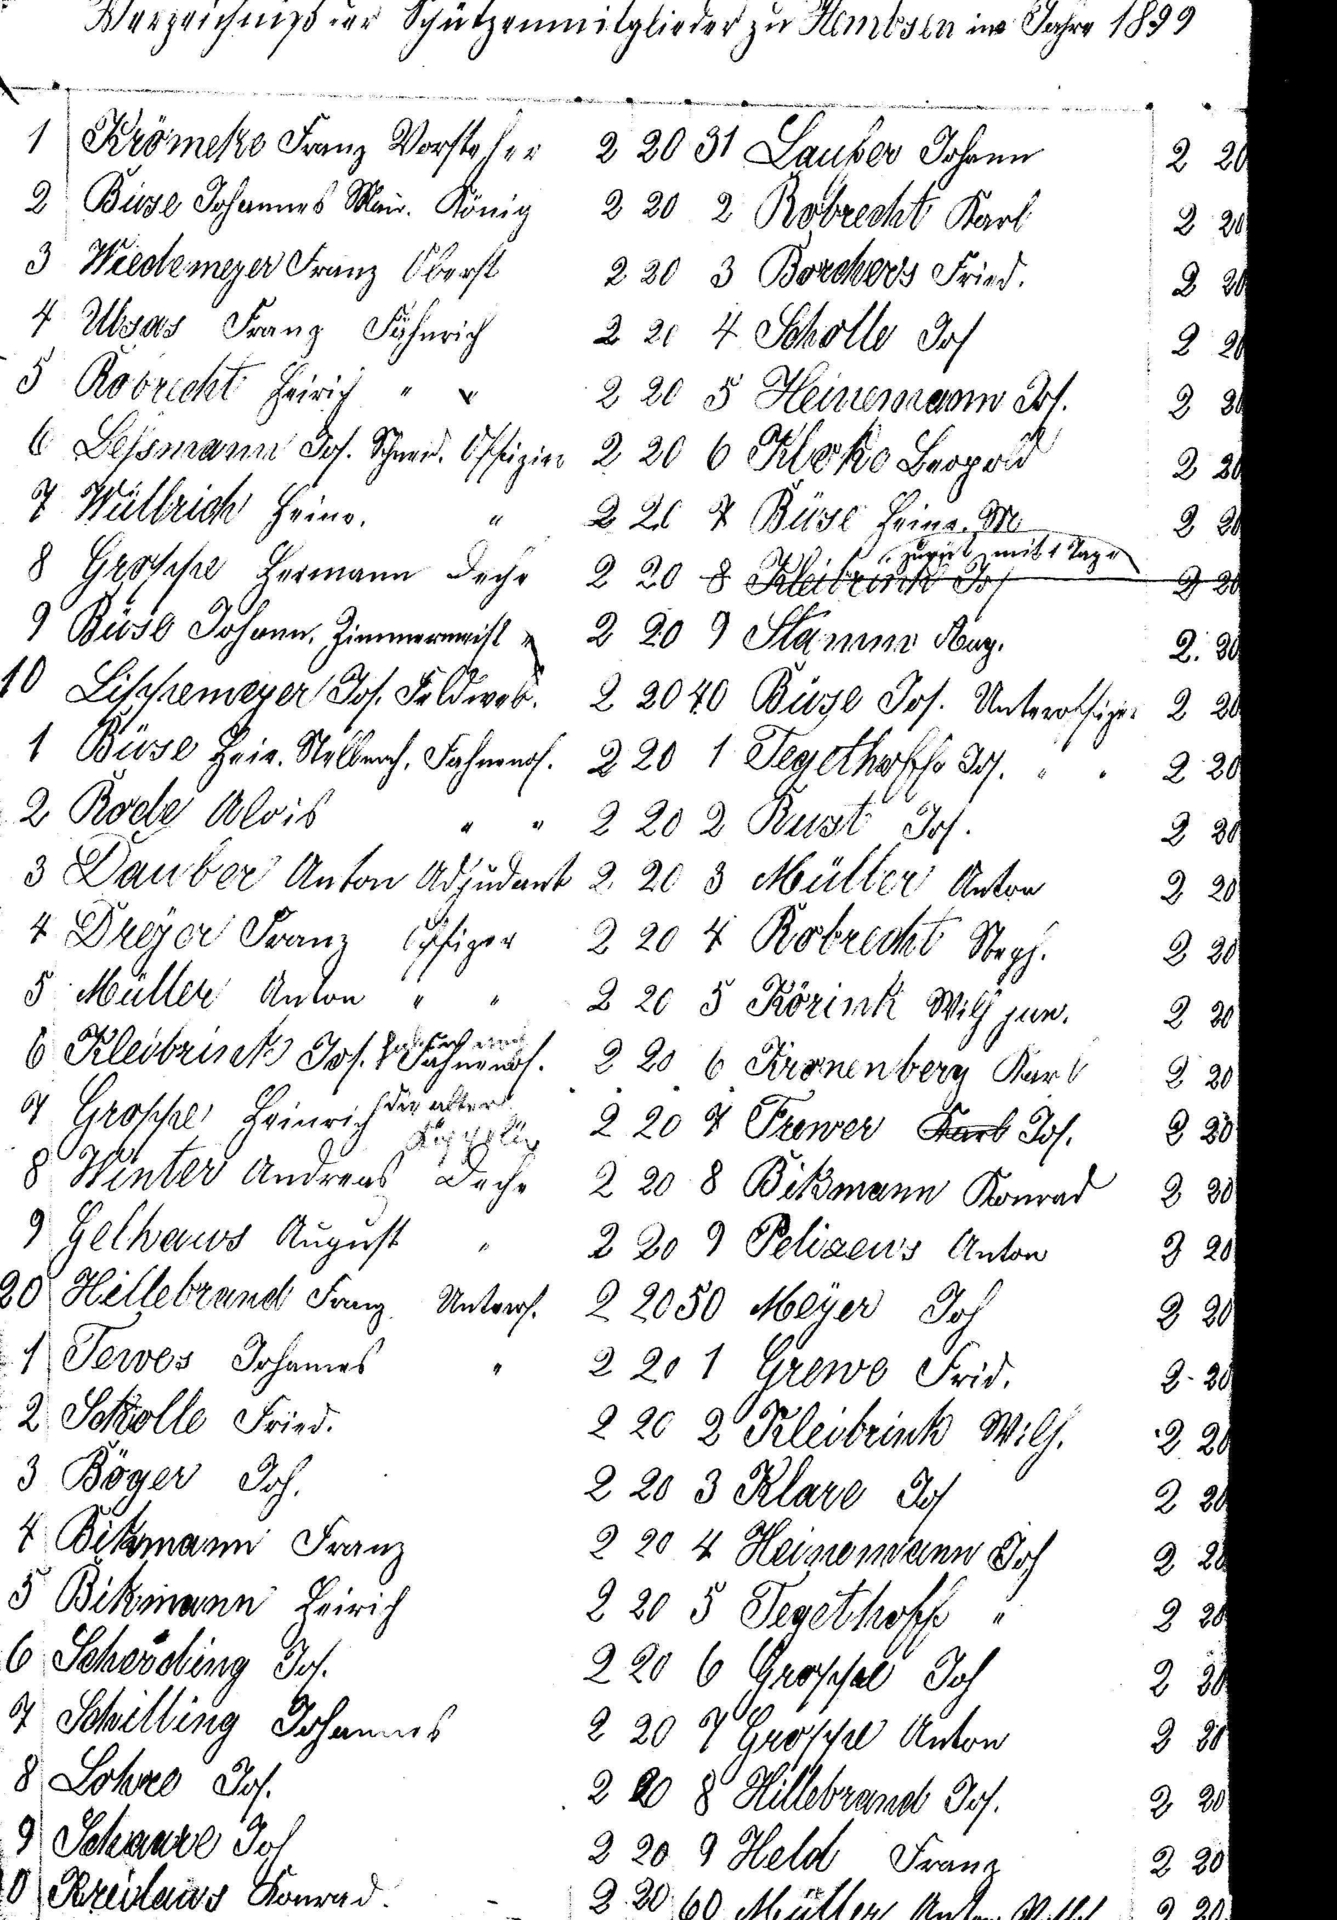 Verzeichniß der Schützenmitglieder zu Hembsen im Jahre 1899
1 Krömeke Franz Vorsteher 2 20
2 Büse Johannes Mau. König 2 20
3 Wiedemeyer Franz Oberst 2 20
4 Ulsas Franz Fähnrich 2 20
5 Robrecht Heirich " " 2 20
6 Leßmann Jos. Schneid. Offizier 2 20
7 Wüllrich Heinr. " 2 20
8 Groppe Hermann Deche 2 20
9 Büse Johann. Zimmermeist " 2 20
10 Lippemeyer Jos. Feldweb. 2 20
1 Büse Heir. Stellmach. Fahnenof. 2 20
2 Rode Alois " " 2 20
3 Dauber Anton Adjudant 2 20
4 Dreÿer Franz Offizier 2 20
5 Müller Anton " " 2 20
6 Kleibrink Jos. Fahnenof. 2 20
7 Groppe Heinrich die alter 2 20
8 Winter Andreas Deche 2 20
9 Gelhaus August " 2 20
20 Hillebrand Franz Unterof. 2 20
1 Tewes Johannes " 2 20
2 Scholle Fried. 2 20
3 Böger Joh. 2 20
4 Bikmann Franz 2 20
5 Bikmann Heirich 2 20
6 Scherding Jos. 2 20
7 Schilling Johannes 2 20
8 Lohre Jos. 2 20
9 Schaare Joh 2 20
0 Kreilaus Konrad. 2 20
31 Lauber Johann 2 20
2 Robrecht Karl 2 20
3 Borchers Fried. 2 20
4 Scholle Jos 2 20
5 Heinemann Jos. 2 20
6 Kloke Leopold 2 20
7 Büse Heinr. M 2 20
zurük mit 1 Tage
8 Kleibrink Jos 2 20
9 Stamm Aug. 2. 20
40 Büse Jos. Unteroffizier 2 20
1 Tegethoff Jos. " " 2 20
2 Rust Jos. 2 20
3 Müller Anton 2 20
4 Robrecht Steph. 2 20
5 Körink Wilh jun. 2 20
6 Kronenberg Karl 2 20
7 Trewer Karl Jos. 2 20
8 Bikmann Konrad 2 20
9 Pelizeus Anton 2 20
50 Meÿer Joh 2 20
1 Grewe Frid. 2 20
2 Kleibrink Wilh. 2 20
3 Klare Jos 2 20
4 Heinemann Joh 2 20
5 Tegethoff " 2 20
6 Groppe Joh 2 20
7 Groppe Anton 2 20
8 Hillebrand Jos. 2 20
9 Held Franz 2 20
60 Müller Anton 2 20